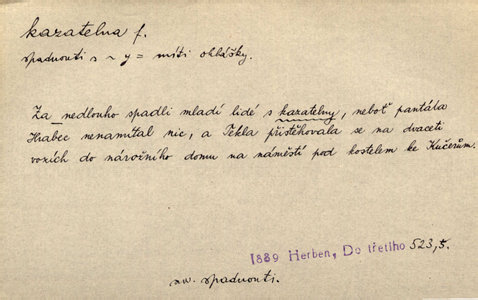 kazatelna f.
spadnouti s ~ y = míti ohlášky.
Za nedlouho spadli mladí lidé s kazatelny, neboť pantáta
Hrabec nenamítal nic, a Tekla přistěhovala se na dvaceti
vozích do nárožního domu na náměstí pod kostelem ke Kučerům.
1889 Herben, Do třetího 523,5.
spadnouti.